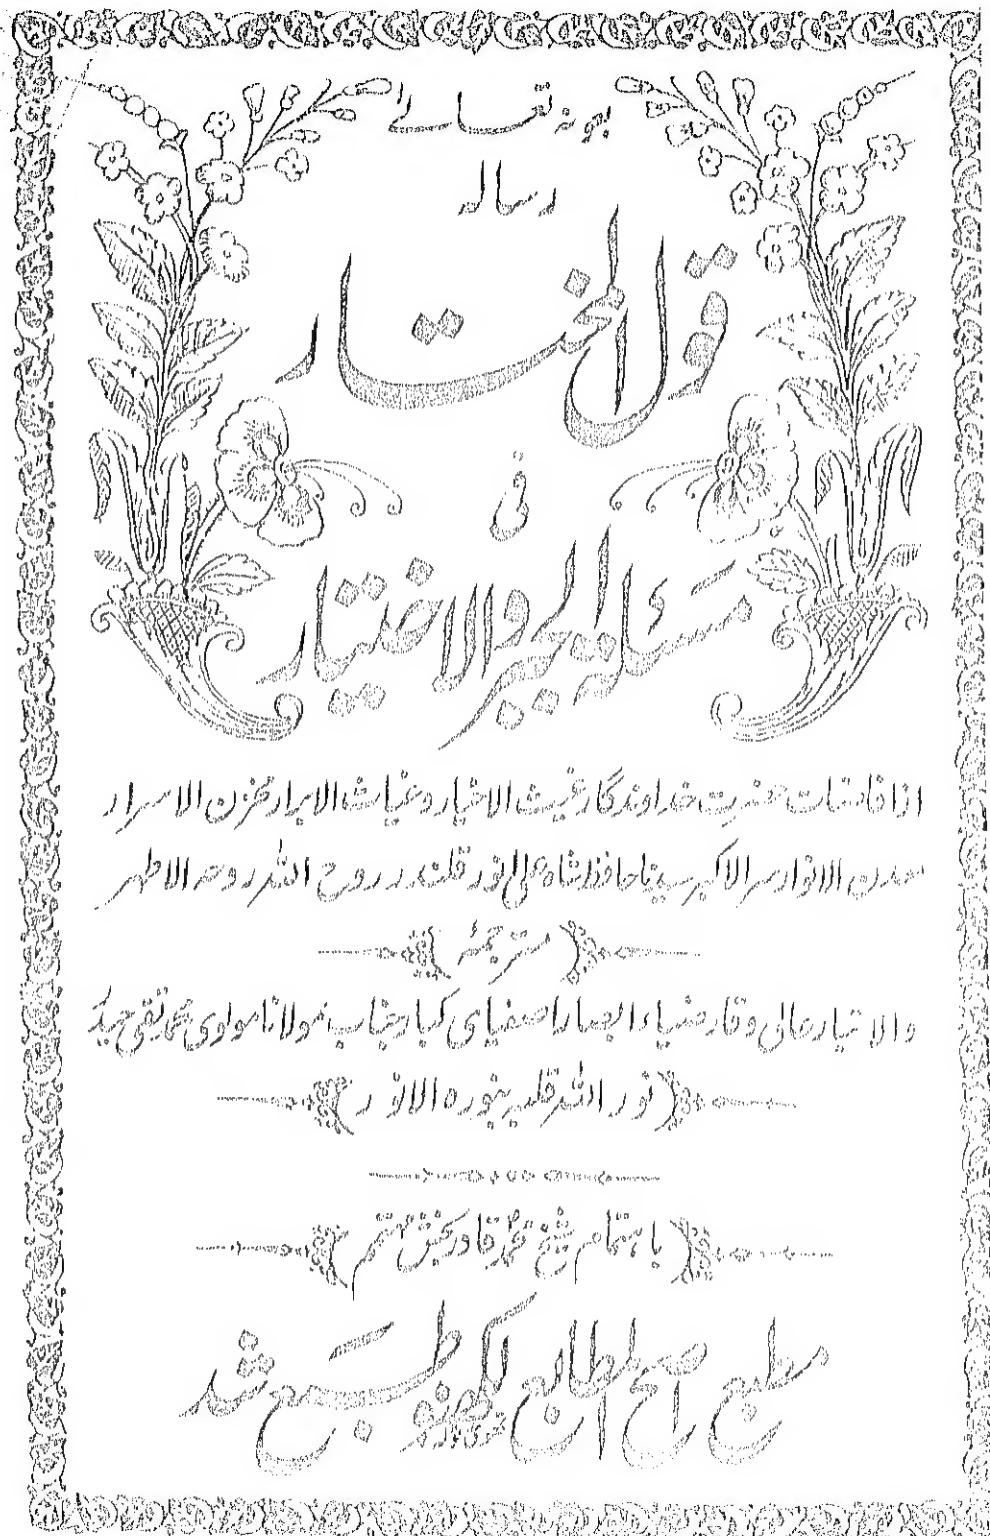 بعونہ تعالےٰ
رسالہ
قول المختار
فی
مسئلۃ الجبر والاختیار
از افاضات حضرت خداوندگار غیث الاخیار و غیاث الابرار مخزن الاسرار
معدن الانوار سر الاکبر سیدنا حافظ شاہ علی انور قلندر روح اللہ روحہ الاطہر
مترجمۂ
والا تبار عالی وقار ضیاء ابصار اصفیای کبار جناب مولانا مولوی محمد تقی حیدر
نور اللہ قلبہ بنورہ الانور
باہتمام شیخ محمد قادر بخش مہتمم
مطبع اصح المطابع لکھنؤ طبع شد